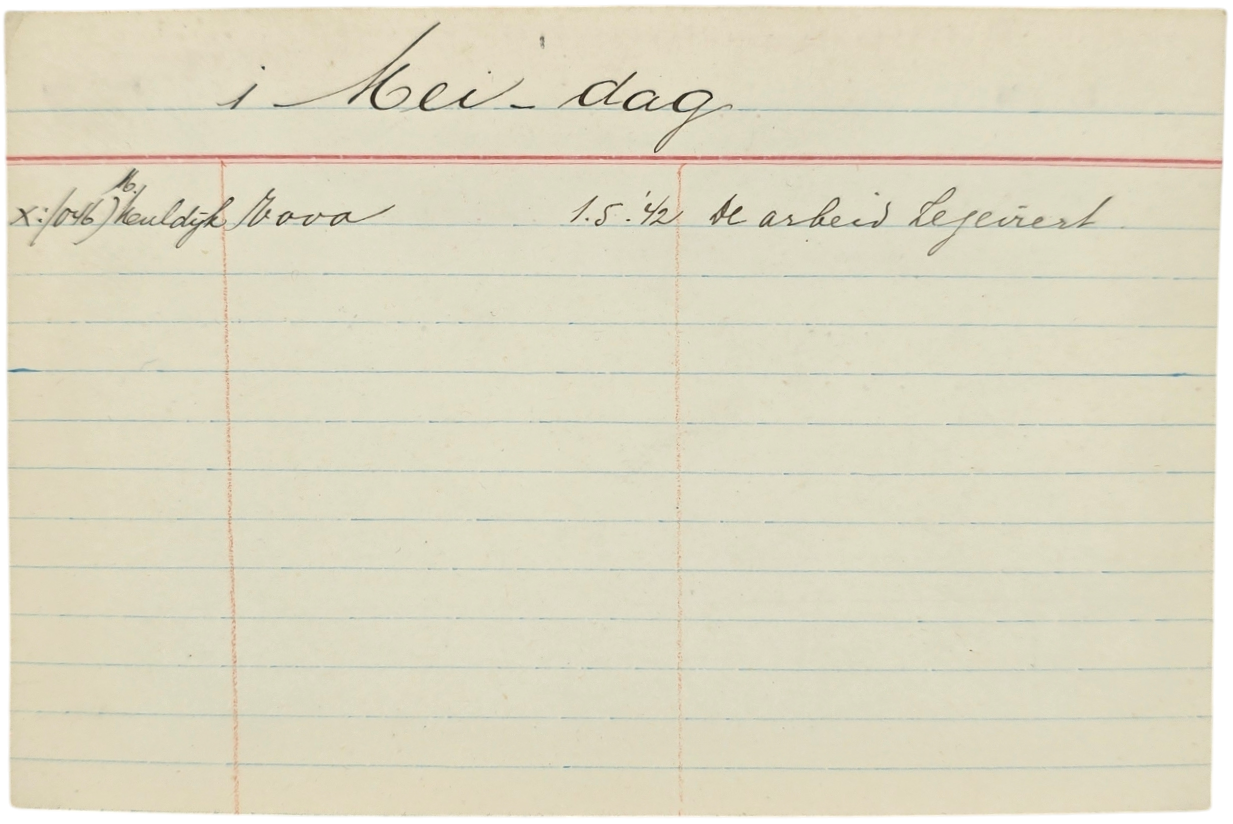 1 Mei - dag
M.
X:(046) Keuldijk Vova 1.5.'42 De arbeid Zegeviert